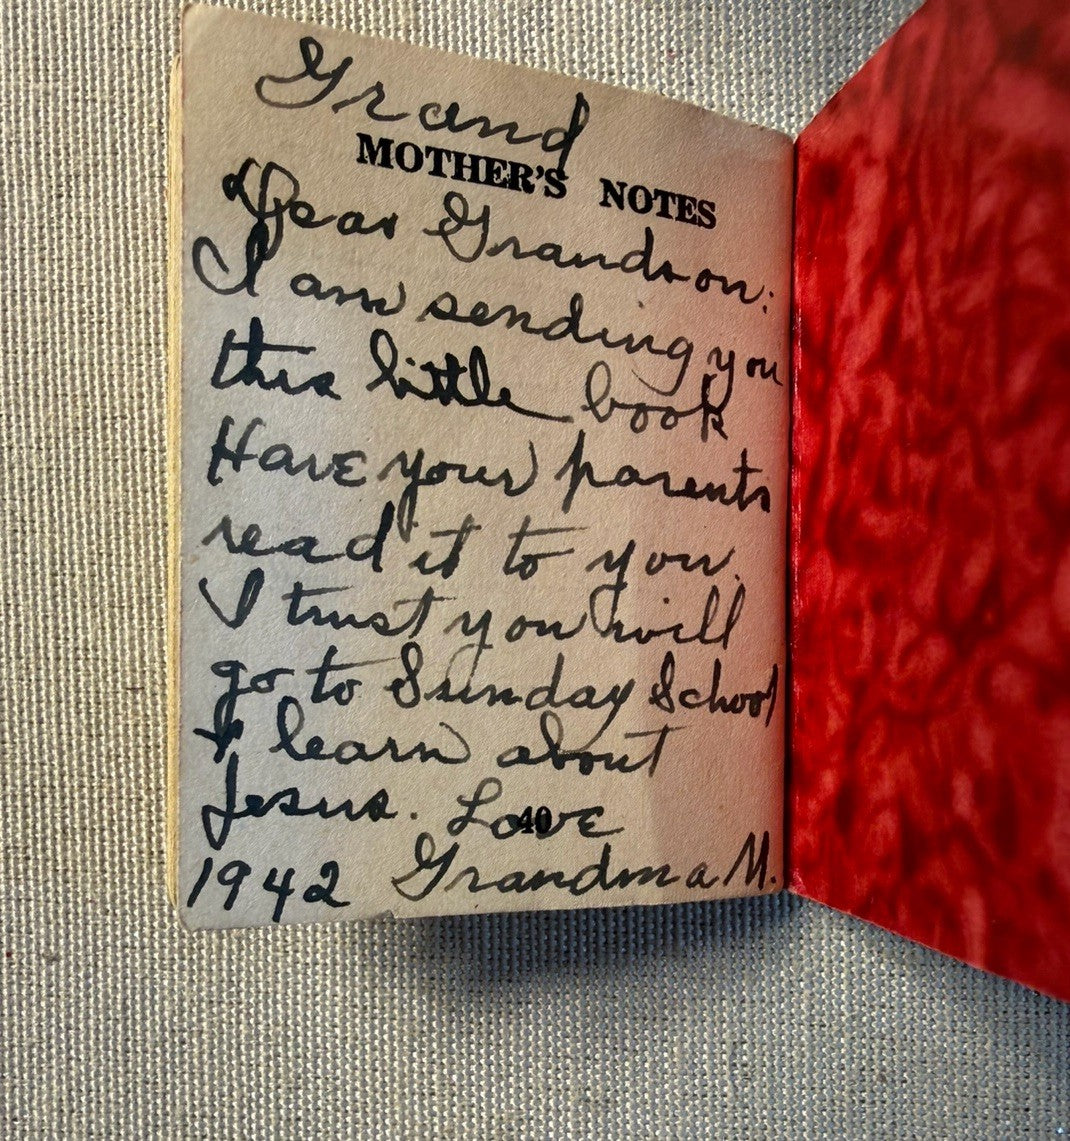 Grand
MOTHER'S NOTES
Dear Grandson:
I am sending you
this little book
Have your parents
read it to you.
I trust you will
go to Sunday School
& learn about
Jesus. Love
40
1942 Grandma M.